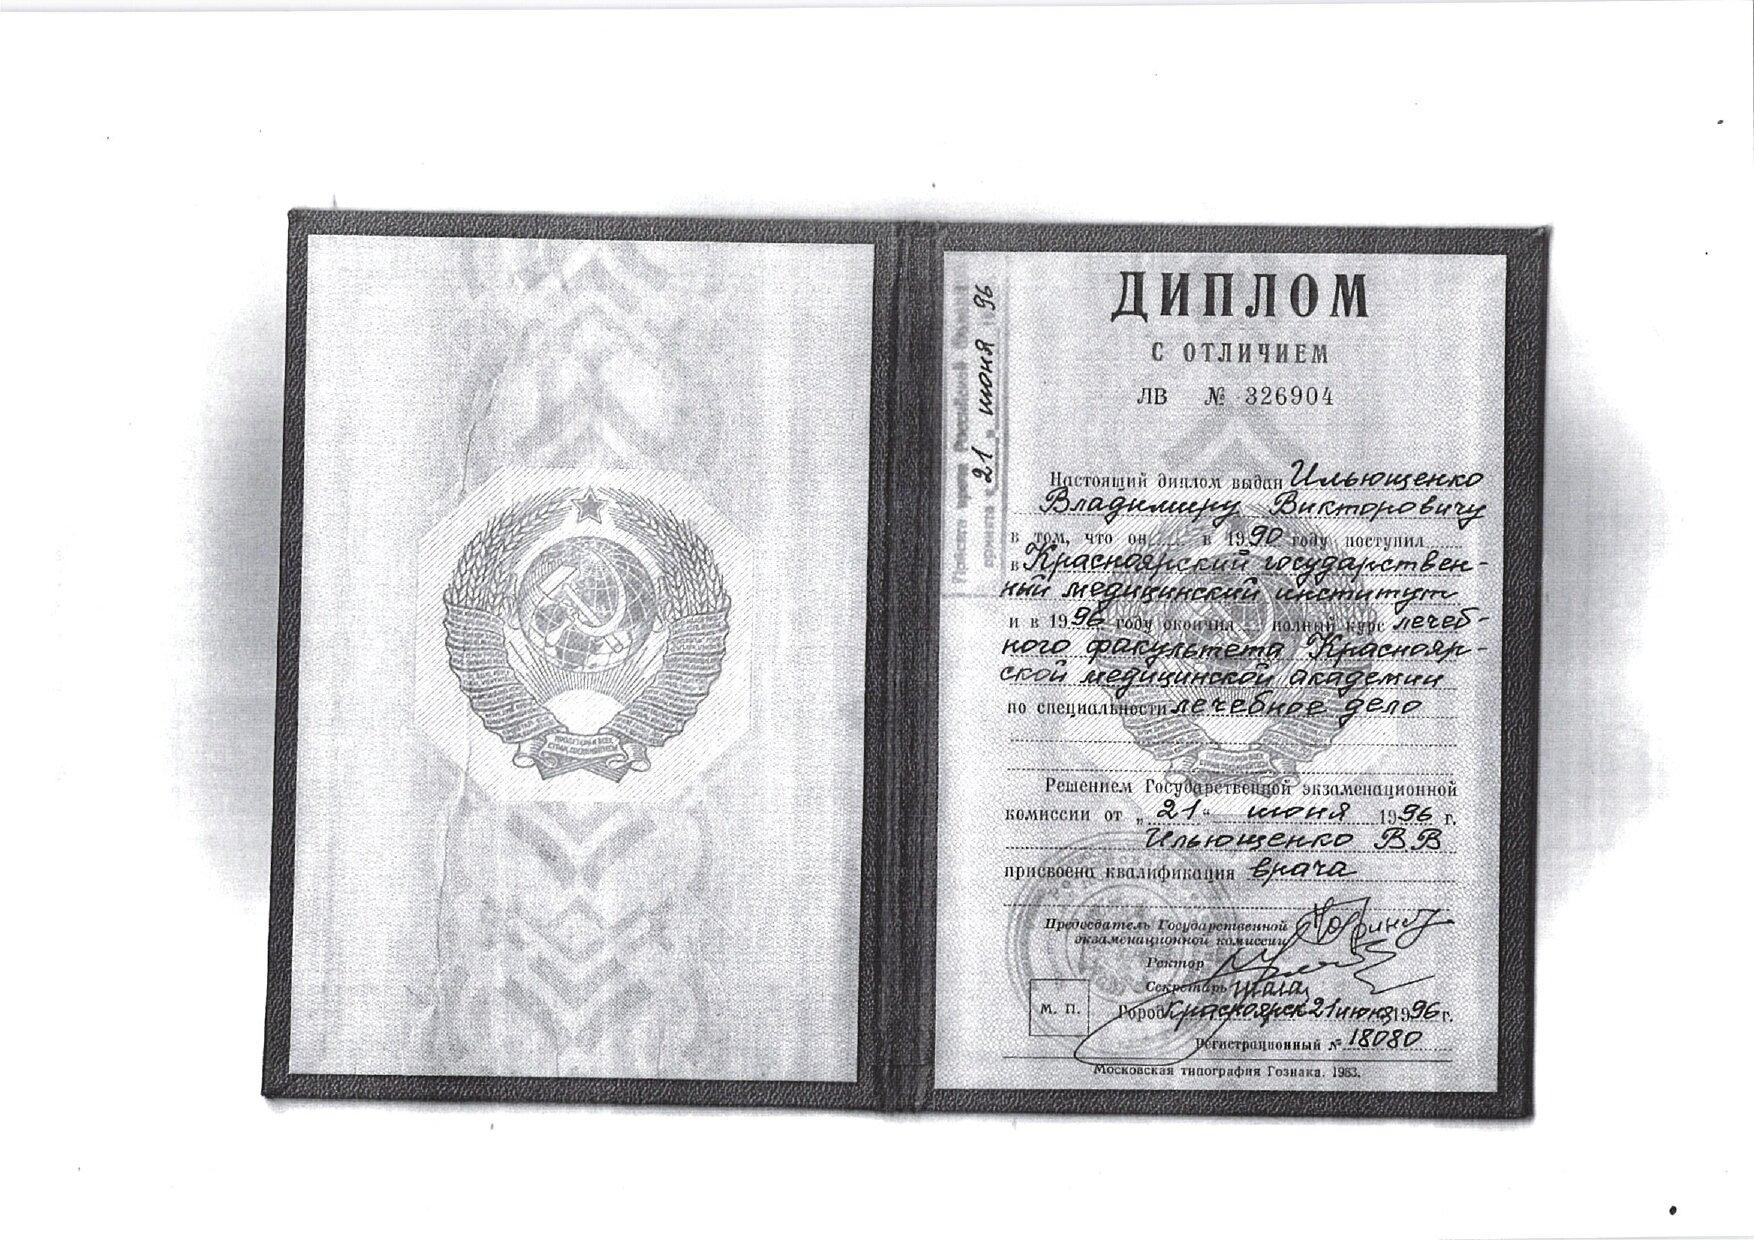 ДИПЛОМ
С ОТЛИЧИЕМ
ЛВ № 326904
Настоящий диплом выдан Ильющенко
Владимиру Викторовичу
в том, что он в 1990 году поступил
в Красноярский государствен-
ный медицинский институт
и в 1996 году окончил полный курс лечеб-
ного факультета Краснояр-
ской медицинской академии
по специальности лечебное дело
Решением Государственной экзаменационной
комиссии от „21“ июня 1996 г.
Ильющенко В В
присвоена квалификация врача
Председатель Государственной
экзаменационной комиссии
Ректор
Секретарь
М. П.
Город Красноярск 21 июня 1996 г.
Регистрационный № 18080
Московская типография Гознака. 1983.
врача Российской
принята „21„ июня 1996
ПРОЛЕТАРИИ ВСЕХ
СТРАН, СОЕДИНЯЙТЕСЬ!